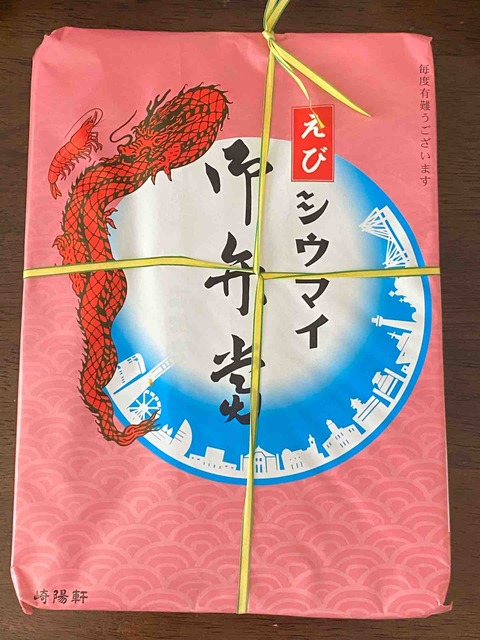 毎度有難うございます
えび
シウマイ
御弁當
崎陽軒